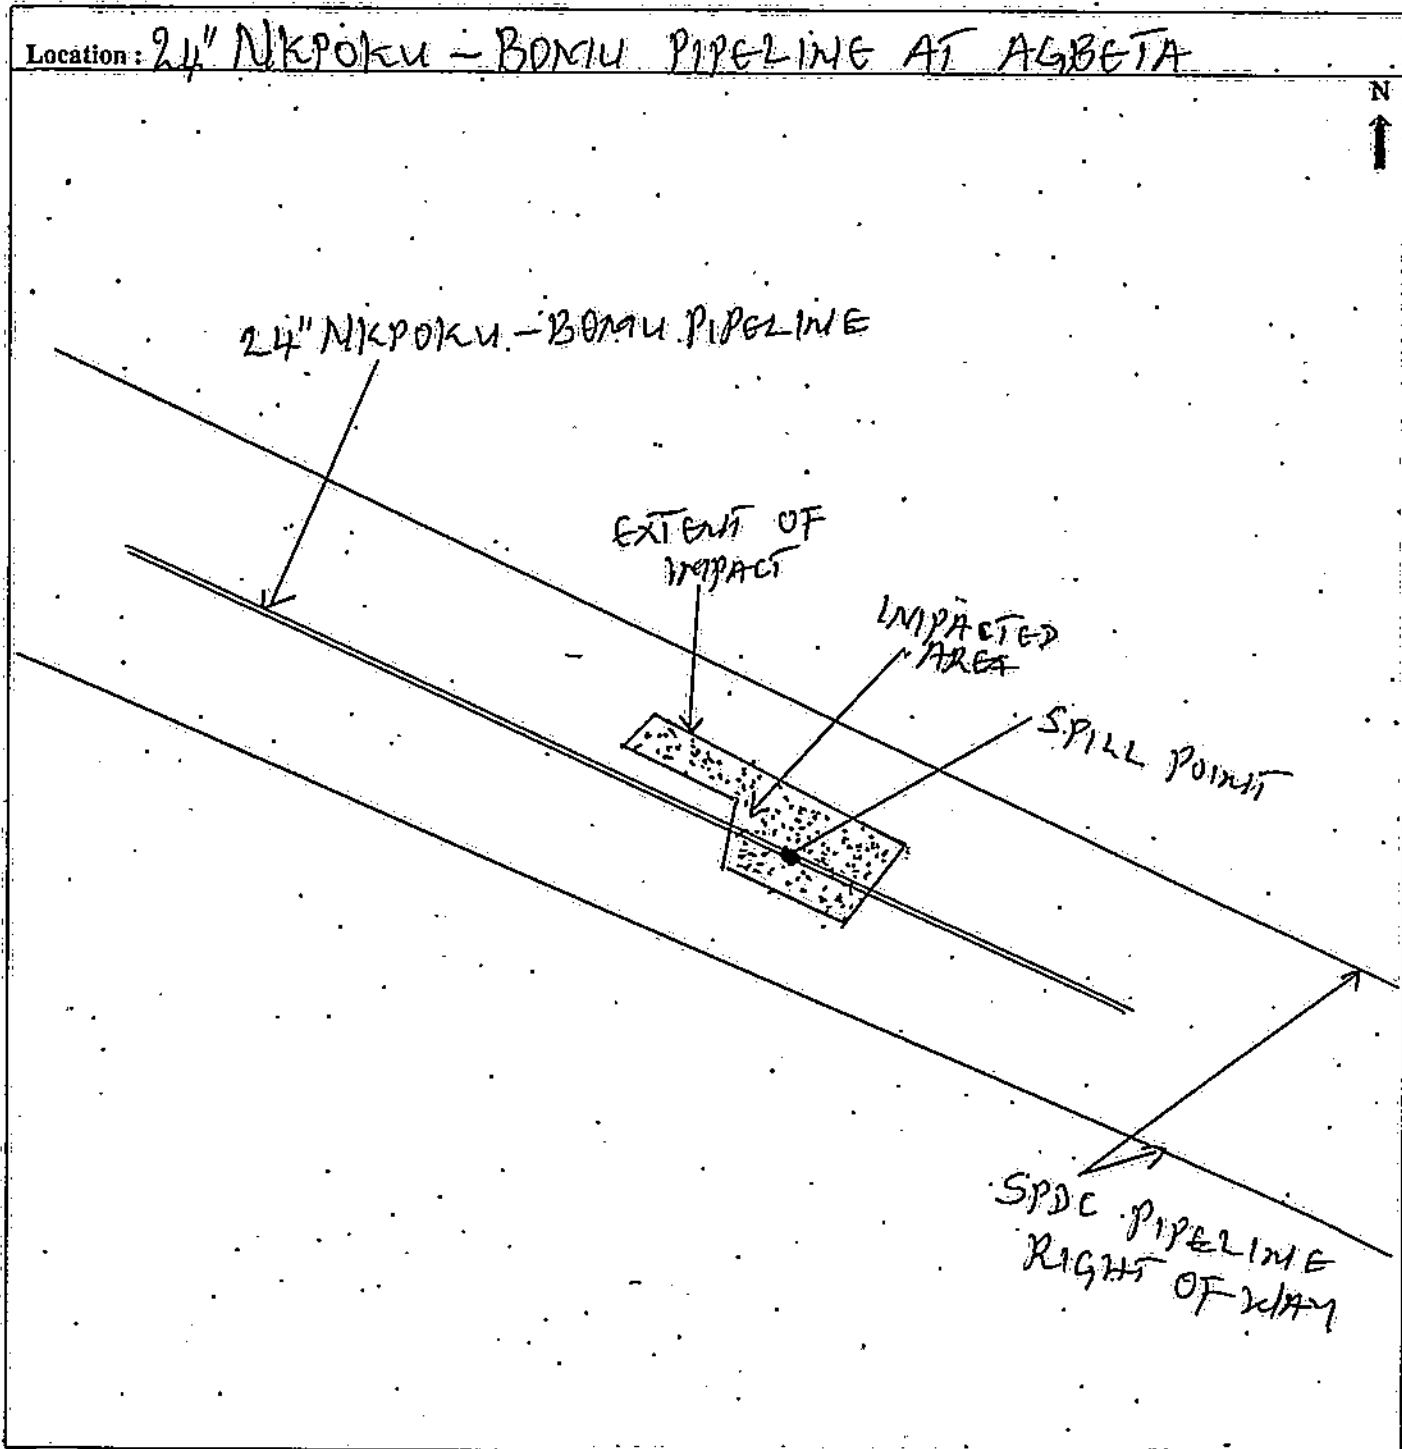 Location: 24" NKPOKU - BOMU PIPELINE AT AGBETA
N
24" NKPOKU - BOMU PIPELINE
EXTENT OF
IMPACT
IMPACTED
AREA
SPILL POINT
SPDC PIPELINE
RIGHT OF WAY